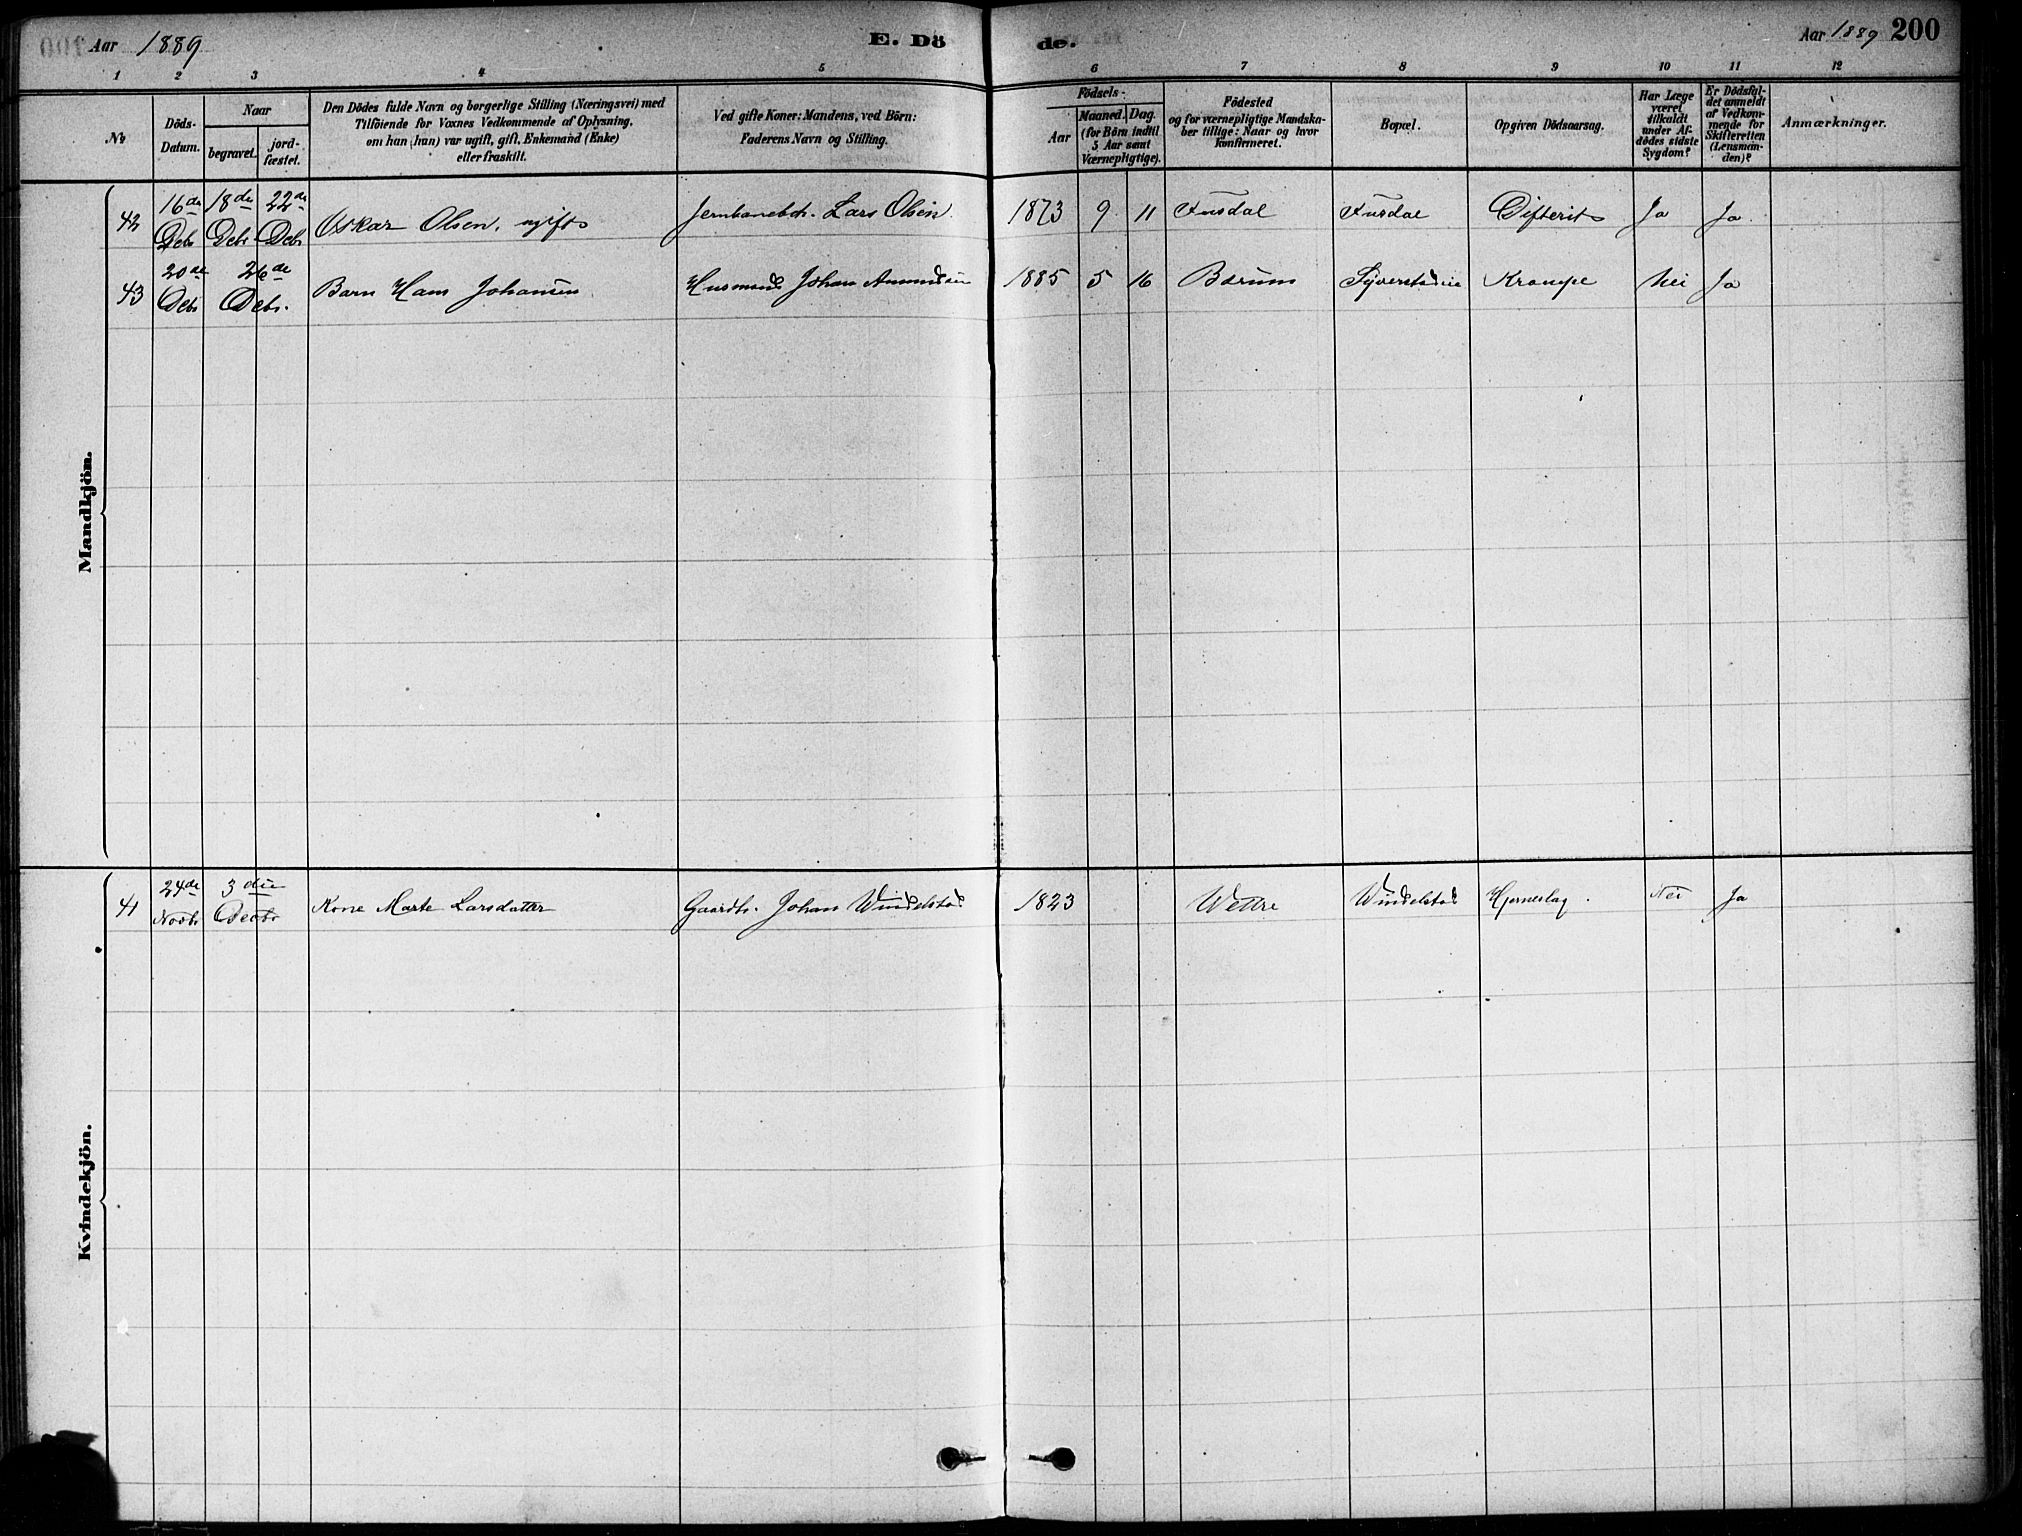 Aar 1889 E. Dö de. Aar 1889 200
1 2 3 4 5 6 7 8 9 10 11 12
No
Döds-
Datum.
Naar
begravet.
jord-
fæstet.
Den Dödes fulde Navn og borgerlige Stilling (Næringsvei) med
Tilföiende for Voxnes Vedkommende af Oplysning,
om han (hun) var ugift, gift, Enkemand (Enke)
eller fraskilt.
Ved gifte Koner: Mandens, ved Börn:
Faderens Navn og Stilling.
Födsels-
Aar
Maaned. Dag.
(for Börn indtil
5 Aar samt
Værnepligtige).
Födested
og for værnepligtige Mandska-
ber tillige: Naar og hvor
konfirmeret.
Bopæl.
Opgiven Dödsaarsag.
Har Læge
været
tilkaldt
under Af-
dödes sidste
Sygdom?
Er Dödsfal-
det anmeldt
af Vedkom-
mende for
Skifteretten
(Lensman-
den)?
Anmærkninger.
Mandkjön.
42 16de Debr 18de Debr 22de Debr Oskar Olsen, ugift Lars Olsen 1873 9 11 Fusdal Fusdal Difterit Ja Ja.
43 20de Debr 26de Debr. Barn Hans Johansen Husmand Johan Amundsen 1885 5 16 Bærum Krampe Nei Ja
Kvindekjön.
41 24de Novbr 3die Decbr Kone Marte Larsdatter Gaardbr. Johan Windelstad 1823 Wettre Windelstad Hjerneslag. Nei Ja